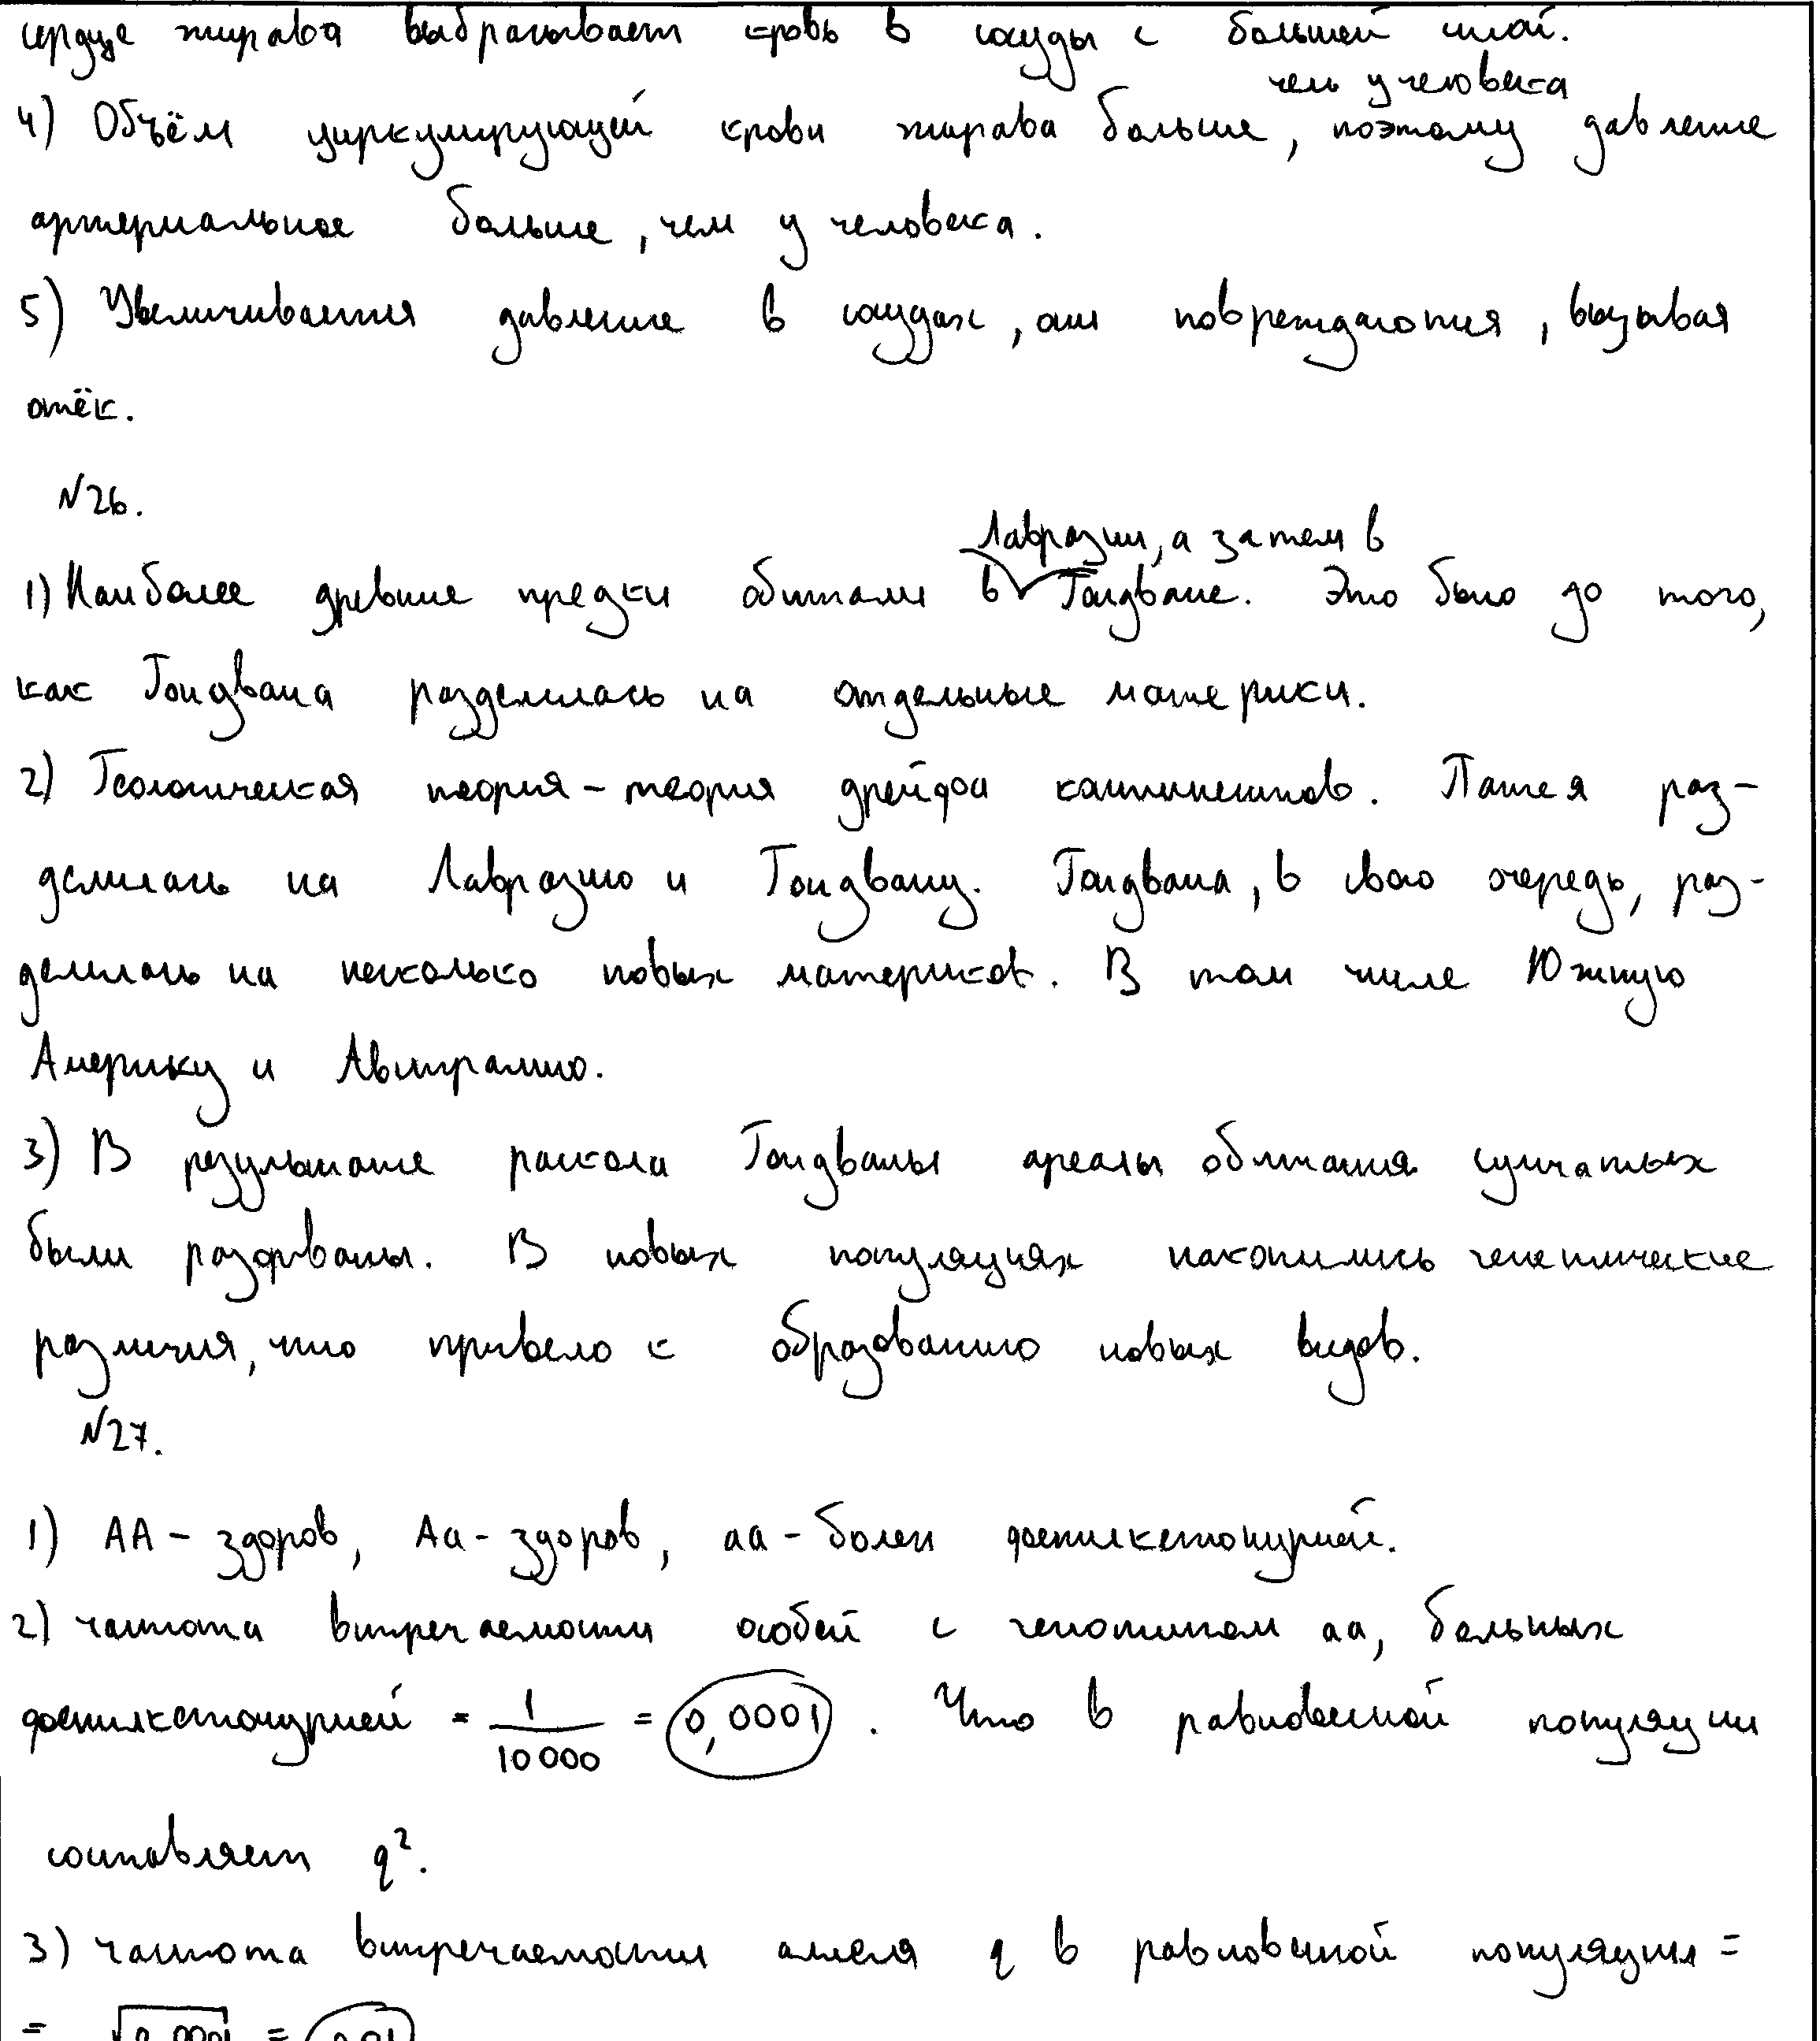 сердце жирафа выбрасывает кровь в сосуды с большей силой.
чем у человека
4) Объём циркулирующей крови жирафа больше, поэтому давление
артериальное больше, чем у человека.
5) Увеличивается давление в сосудах, они повреждаются, вызывая
отёк.
№26.
Лавразии, а затем в
1) Наиболее древние предки обитали в Гондване. Это было до того,
как Гондвана разделилась на отдельные материки.
2) Геологическая теория – теория дрейфа континентов. Пангея раз-
делилась на Лавразию и Гондвану. Гондвана, в свою очередь, раз-
делилась на несколько новых материков. В том числе Южную
Америку и Австралию.
3) В результате раскола Гондваны ареалы обитания сумчатых
были разорваны. В новых популяциях накопились генетические
различия, что привело к образованию новых видов.
№27.
1) АА – здоров, Аа - здоров, аа - болен фенилкетонурией.
2) частота встречаемости особей с генотипом аа, больных
фенилкетонурией = 1/10000 = 0,0001. Что в равновесной популяции
составляет q².
3) частота встречаемости аллеля q в равновесной популяции =
= √0,0001 = 0,01